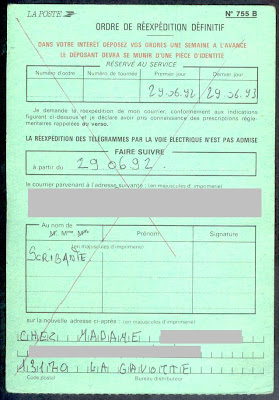 LA POSTE N° 755 B
ORDRE DE RÉEXPÉDITION DÉFINITIF
DANS VOTRE INTÉRÊT DÉPOSEZ VOS ORDRES UNE SEMAINE A L'AVANCE
LE DÉPOSANT DEVRA SE MUNIR D'UNE PIÈCE D'IDENTITÉ
RÉSERVÉ AU SERVICE
Numéro d'ordre Numéro de tournée Premier jour Dernier jour
29.06.92 29.06.93
Je demande la réexpédition de mon courrier, conformément aux indications
figurant ci-dessous et je déclare avoir pris connaissance des prescriptions régle-
mentaires rappelées au verso.
LA RÉEXPÉDITION DES TÉLÉGRAMMES PAR LA VOIE ÉLECTRIQUE N'EST PAS ADMISE
FAIRE SUIVRE
à partir du 29.06.92.
le courrier parvenant à l'adresse suivante : (en majuscules d'imprimerie)
Au nom de Prénom Signature
M. Mme Mlle
(en majuscules d'imprimerie)
SCRIBANTE
sur la nouvelle adresse ci-après : (en majuscules d'imprimerie)
CHEZ MADAME
13170 LA GAVOTTE
Code postal Bureau distributeur